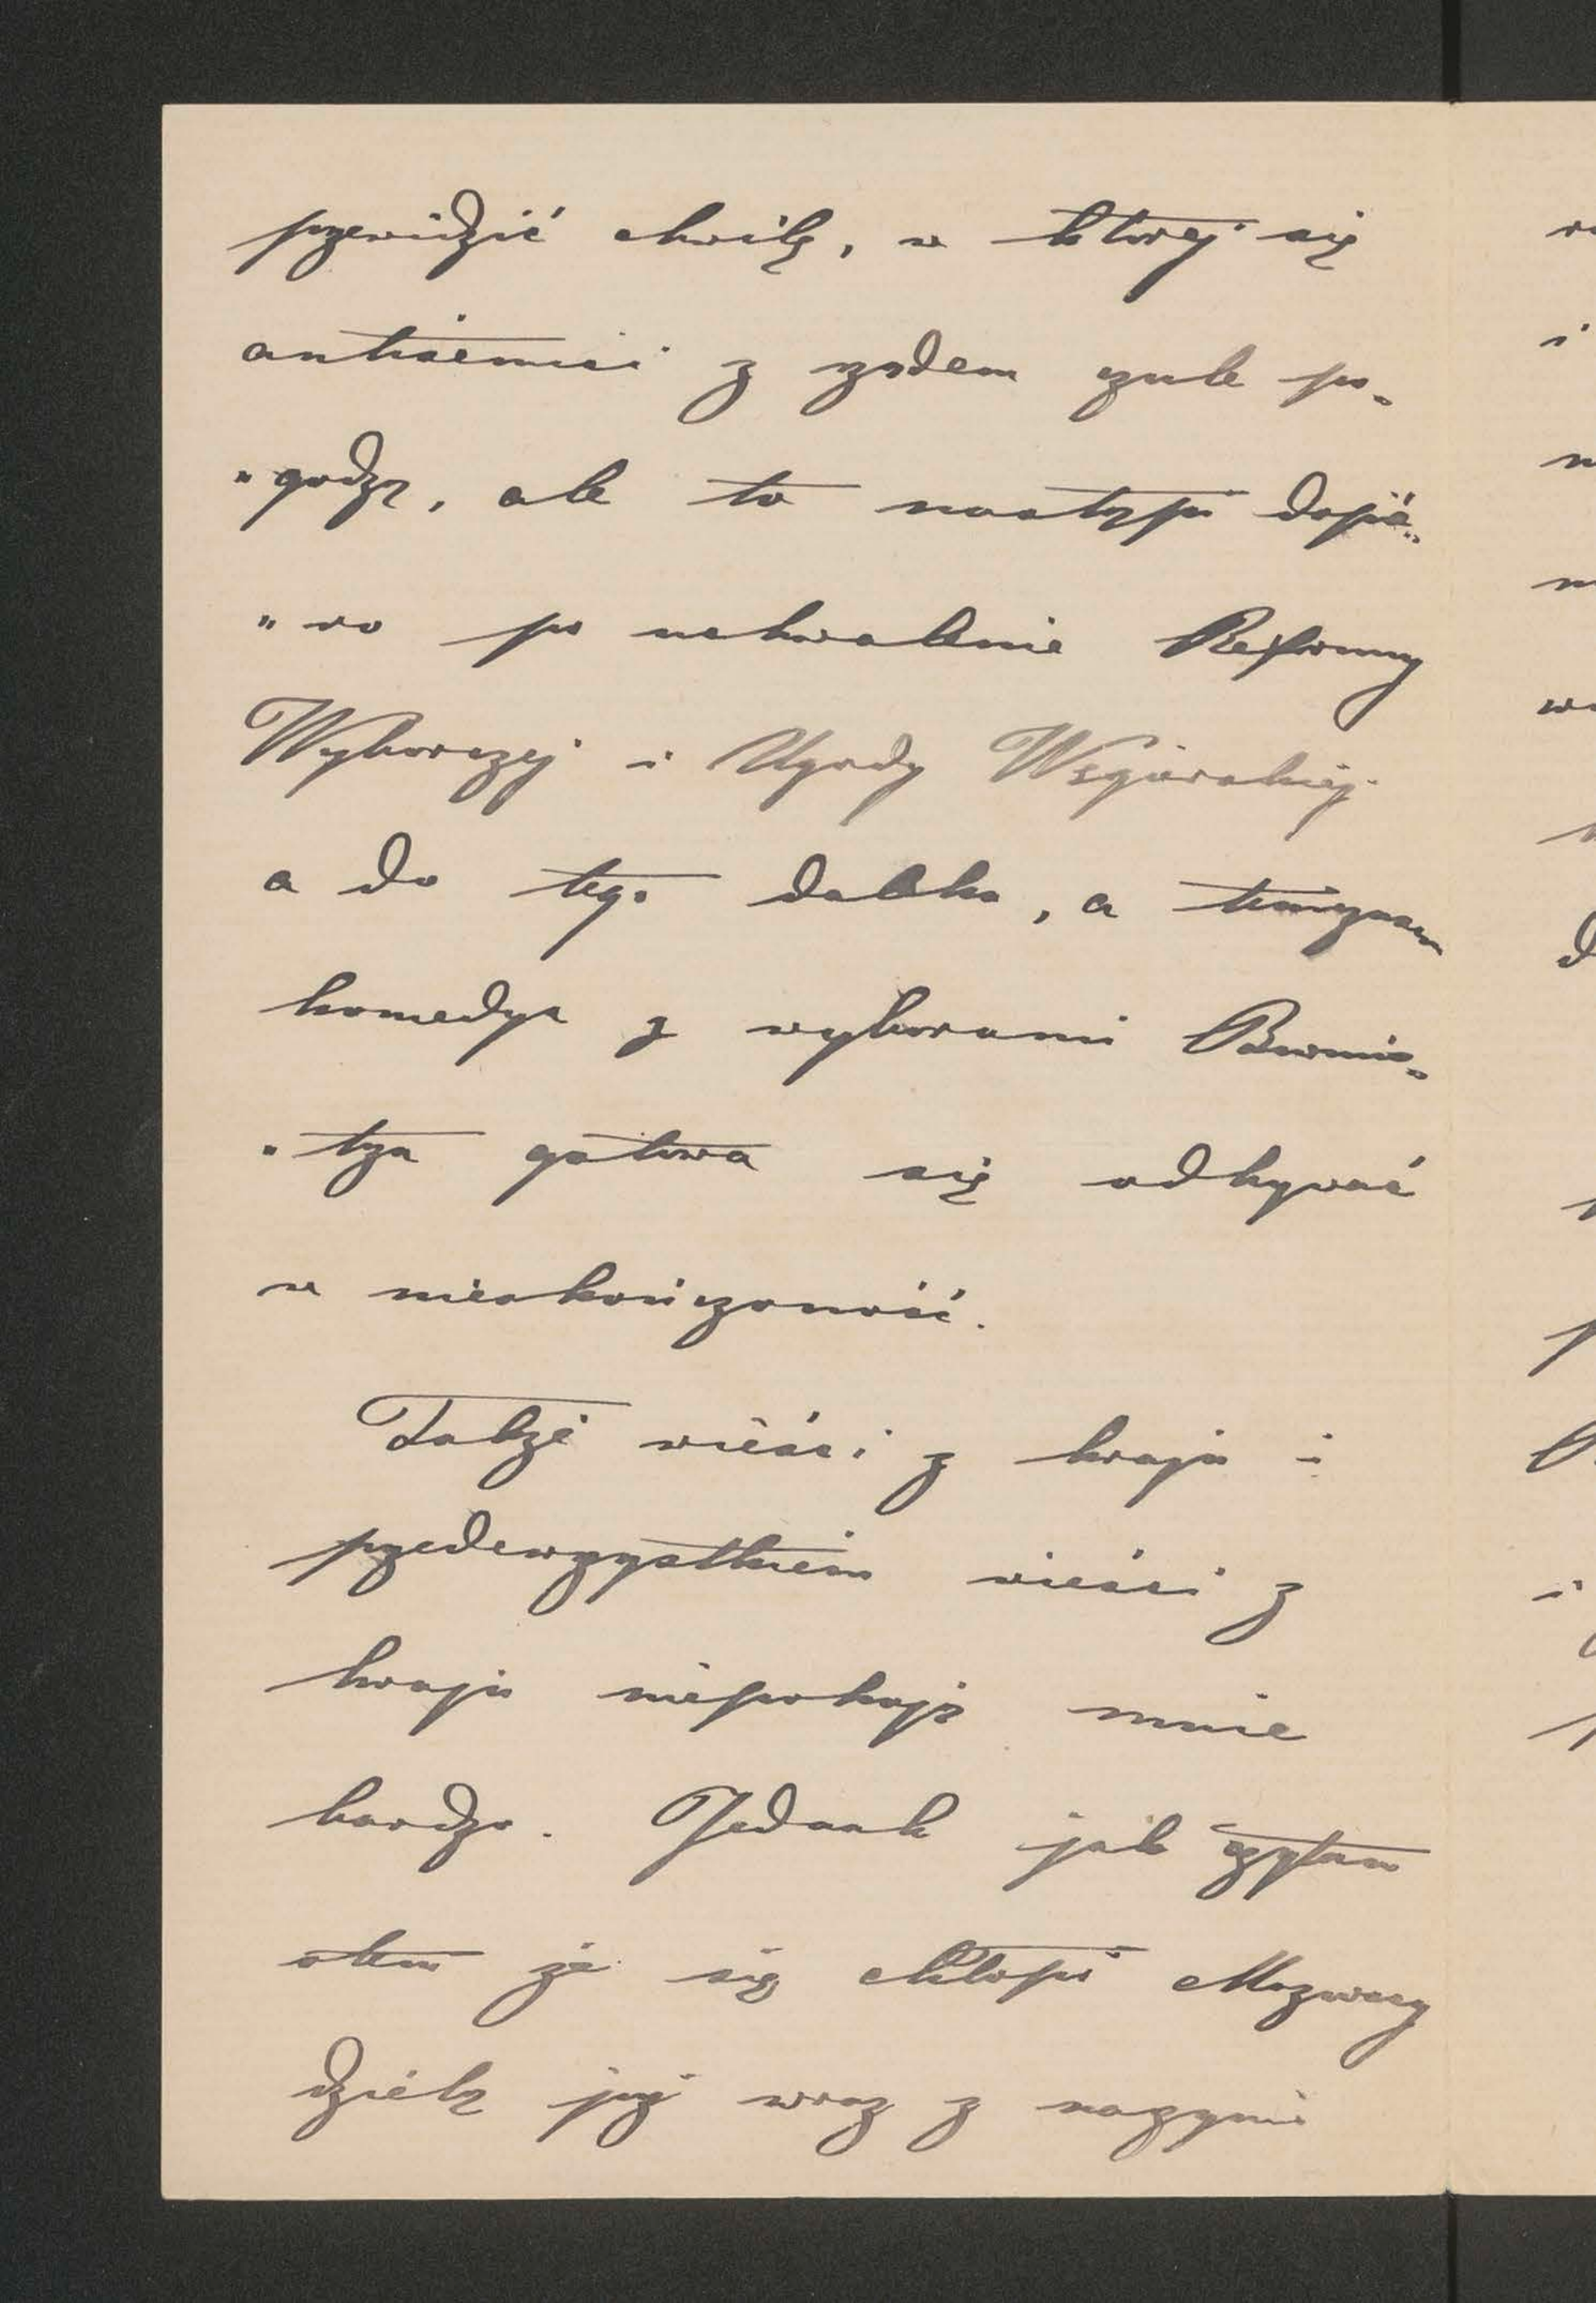 przewidzić chwilę, w której się
antisemici z rządem czule po-
"godzą, ale to nastąpi dopie-
"ro po uchwalenie Reformy
Wyborczej i Ugody Węgierskiej
a do tego daleko, a tymczasem
komedya z wyborami Burmis-
"trza gotowa się odbywać
w nieskończoność.
Także wieści z kraju i
przedewszystkiem wieści z
kraju niepokoją mnie
bardzo. Jednak jak czytam
otem że się chłopi Mazurzy
dzielą jaj wraz z naszymi